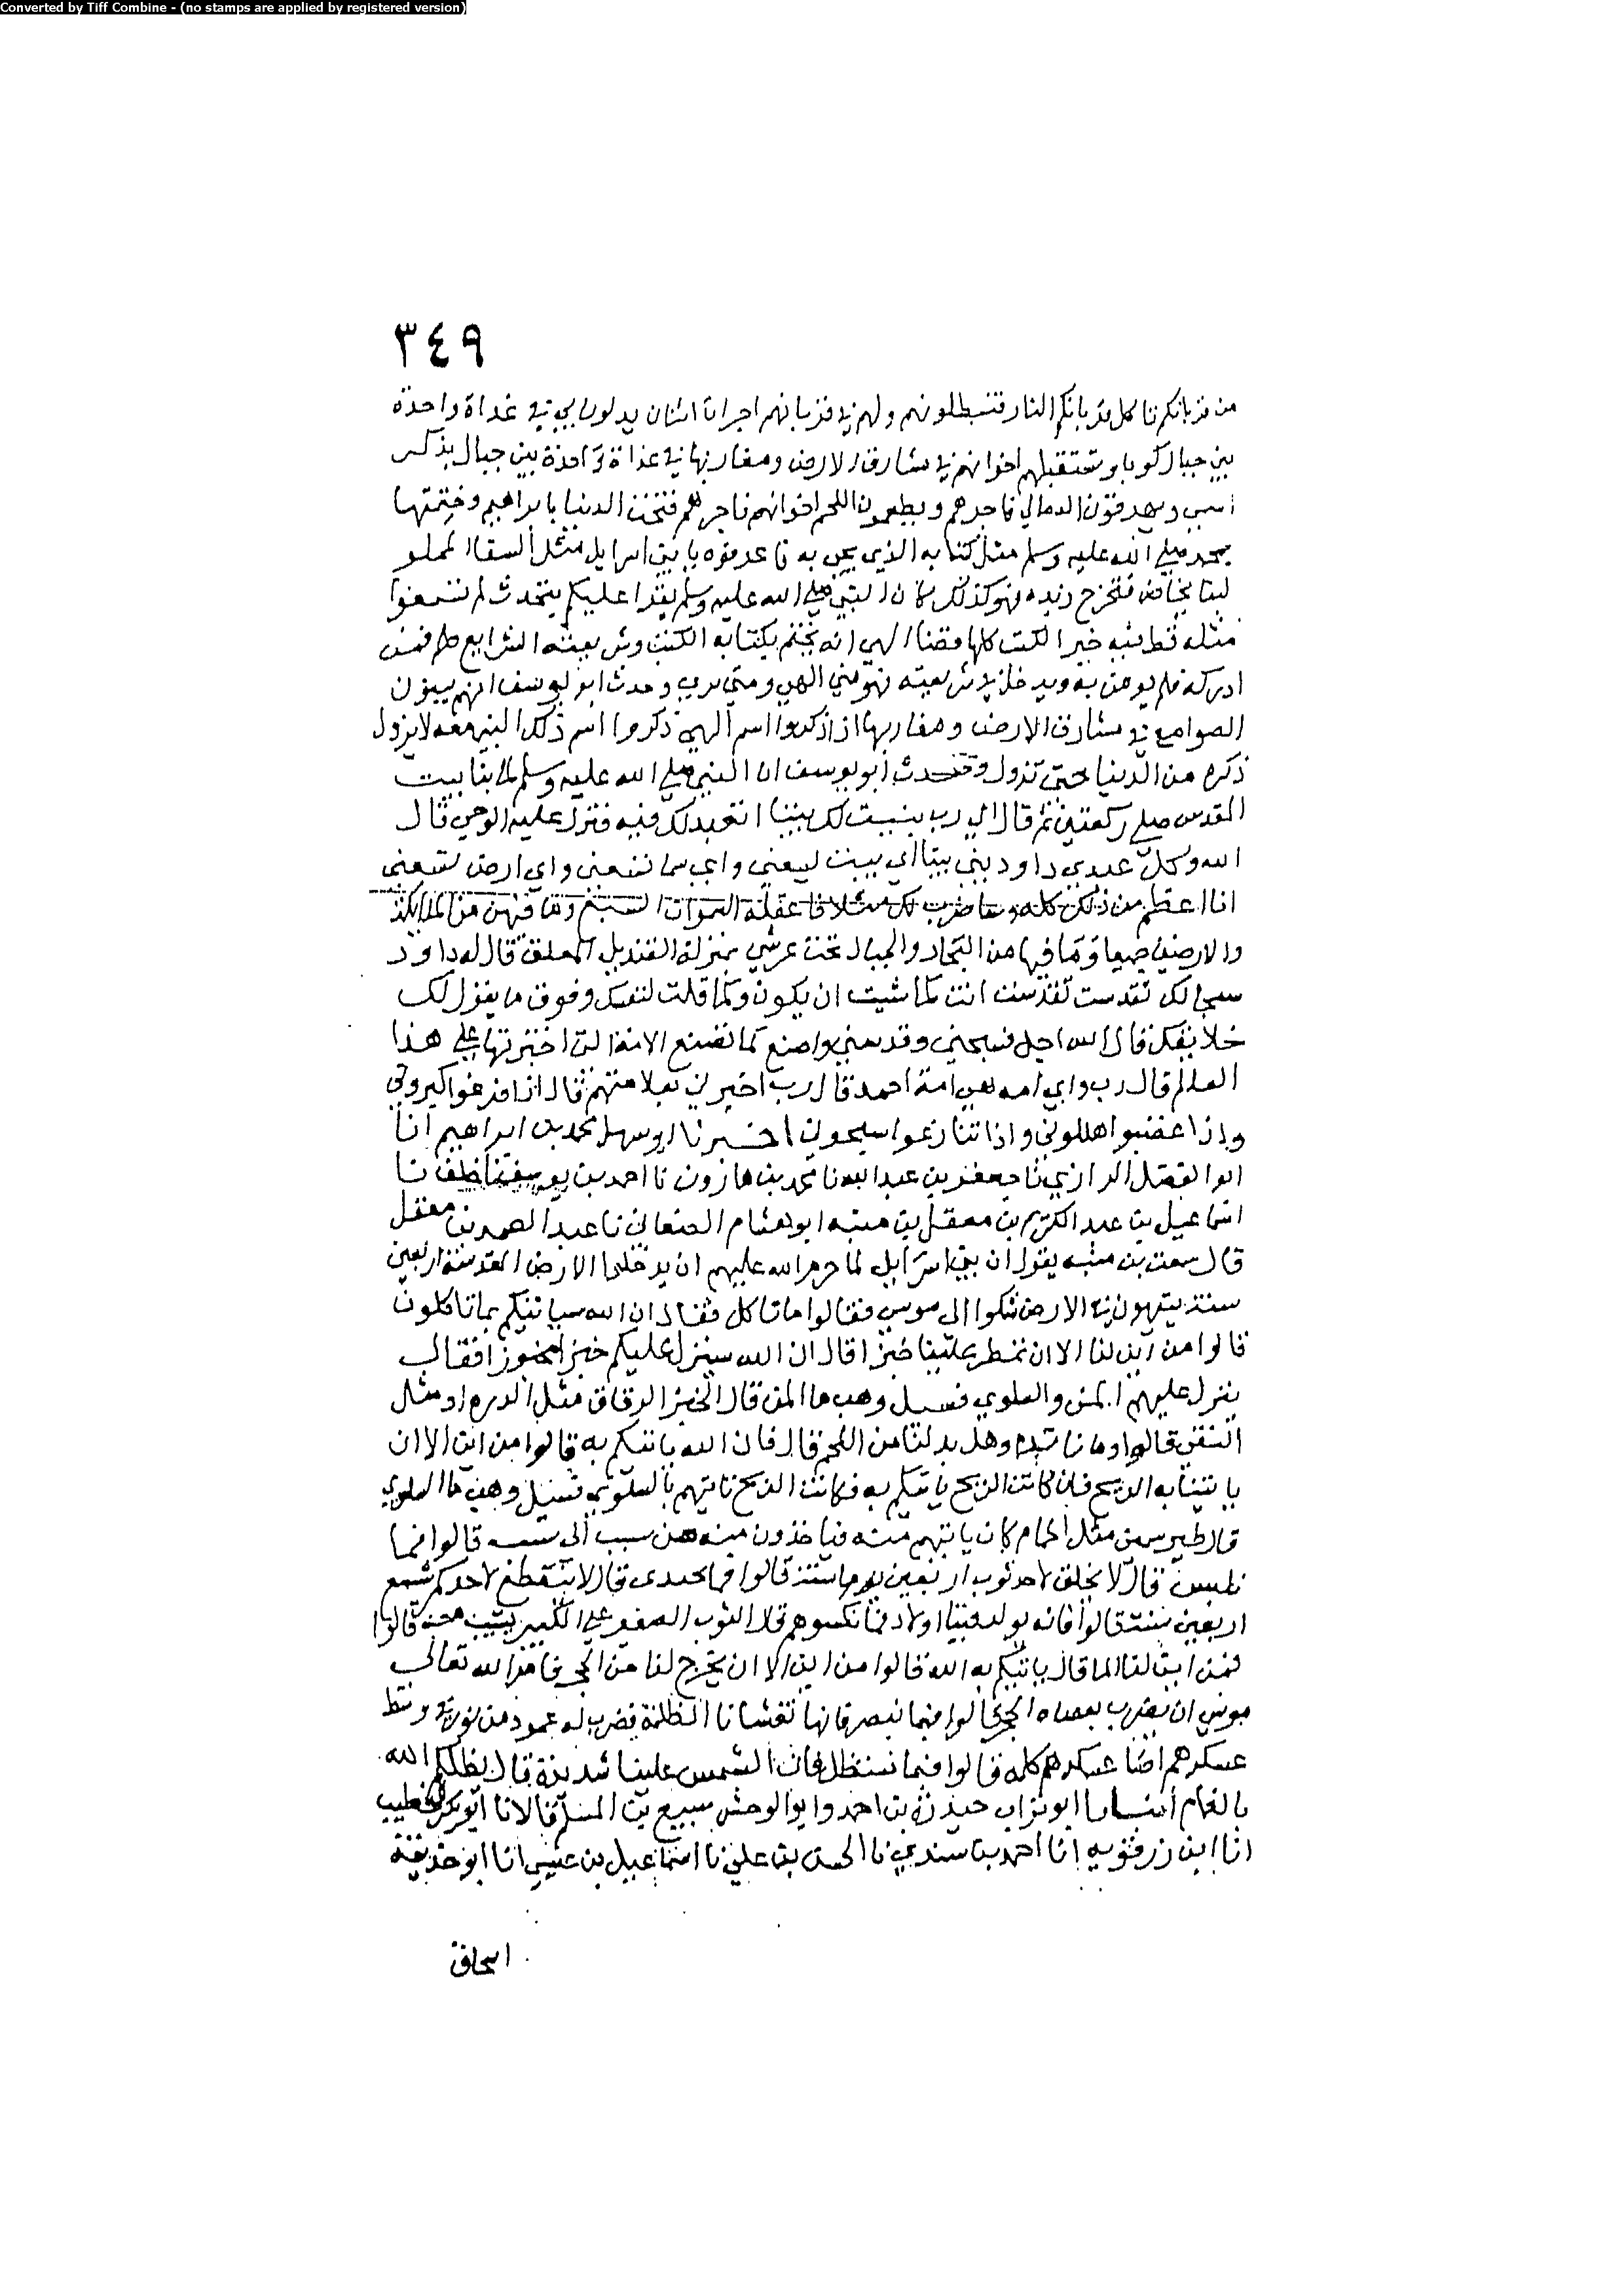 Converted by Tiff Combine - (no stamps are applied by registered version)
٣٤٩
من قربانكم تاكل قربانكم النار فتبطلونهم ولهم في قربانهم اجران اثنان غداة واحدة
بين جبال وتستقبلهم اخوانهم في مشارق الارض ومغاربها في غداة واحدة بين جبال بذكر
ويهرقون الدما لي فاجرهم ويطعمون اللحم اخوانهم فاجرهم فتحت الدنيا بابراهيم وختمتها
بمحمد صلى الله عليه وسلم مثل كتابه الذي يجي به فاعرفوه يا بني اسرايل مثل السقا المملو
لبنا يخاض فتخرج زبده فهو كذلك كان النبي صلى الله عليه وسلم يقرا عليكم يتحدث لم تسمعوا
مثله قط فيه خبر الكتب كلها الهي انه يختم بكتابه الكتب وشريعته الشرايع فمن
ادركه فلم يومن به ويدخل في شريعته فهو مني الهي ومتي بري وحدث ابو يوسف انهم يبنون
الصوامع في مشارق الارض ومغاربها اذا ذكروا اسم الهي ذكروا اسم ذلك النبي معه لا يزول
ذكره من الدنيا حتى تزول وحدث ابو يوسف ان النبي صلى الله عليه وسلم لما بنا بيت
المقدس صلى ركعتين ثم قال اي رب بنيت لك بيتا اتعبد لك فيه فنزل عليه الوحي قال
الله وكل عبدي داود بني بيتا اي بيت ليسعني واي سما تسعني واي ارض تسعني
انا اعظم من ذلك كله وساضرب لك مثلا فاعقله السموات السبع وما فيهن من الملايكة
والارضين جميعا وما فيها من البحار والجبال تحت عرشي بمنزلة القنديل المعلق قال له داود
سبحانك تقدست تقدست انت كما شيت ان يكون وكما قلت لنفسك وفوق ما يقول لك
خلايقك قال الله اجل فسبحني وقدسني واصنع كما تصنع الامة التي اخترتها على هذا
العالم قال رب واي امه هي امة احمد قال رب اخبرني بعلامتهم قال اذا فزعوا كبروني
واذا غضبوا هللوني واذا تنازعوا سبحوني اخبرنا ابو سهل محمد بن ابراهيم انا
ابو الفضل الرازي نا جعفر بن عبد الله نا محمد بن هارون نا احمد بن يوسف نا
اسماعيل بن عبد الكريم بن معقل بن منبه ابو هشام الصنعاني نا عبد الصمد بن معقل
قال سمعت بن منبه يقول ان بني اسرايل لما حرم الله عليهم ان يدخلوا الارض المقدسة اربعين
سنة يتيهون في الارض شكوا الى موسى فقالوا ما ناكل فقال ان الله سياتيكم بما تاكلون
قالوا من اين لنا الا ان تمطر علينا خبزا قال ان الله سينزل عليكم خبزا مخبوزا فقال
ينزل عليهم المن والسلوي فسيل وهب ما المن قال الخبز الرقاق مثل الدره او مثل
النقي قالوا وما ناتدم وهل بد لنا من اللحم قال فان الله ياتيكم به قالوا من اين الا ان
ياتينا به الريح فان كانت الريح ياتيكم به فكانت الريح تاتيهم بالسلوي فسيل وهب ما السلوي
قال طير سمين مثل الحمام كان ياتيهم منه فياخذون منه من سبت الى سبت قالوا فما
نلبس قال لا يخلق لاحد ثوب اربعين سنة قالوا فما نحتذي قال لا ينقطع لاحدكم شسع
اربعين سنة قالوا فانه يولد فينا اولاد فما نكسوهم قال الثوب الصغير على الكبير يشب معه قالوا
فمن اين لنا الما قال ياتيكم به الله قالوا من اين الا ان يخرج لنا من الحجر فامر الله تعالى
موسى ان يضرب بعصاه الحجر قالوا فبما نبصر فانها تغشانا الظلمة فضرب له عمود من نور في وسط
عسكرهم اضا عسكرهم كله قالوا فبما نستظل فان الشمس علينا شديدة قال يظلكم الله
بالغمام انبانا ابو تراب حيدرة بن احمد وابو الوحش سبيع بن المسلم قالا نا ابو بكر الخطيب
انا ابن رزقويه انا احمد بن سندي نا الحسن بن علي نا اسماعيل بن عيسى انا ابو حذيفة
اسحاق